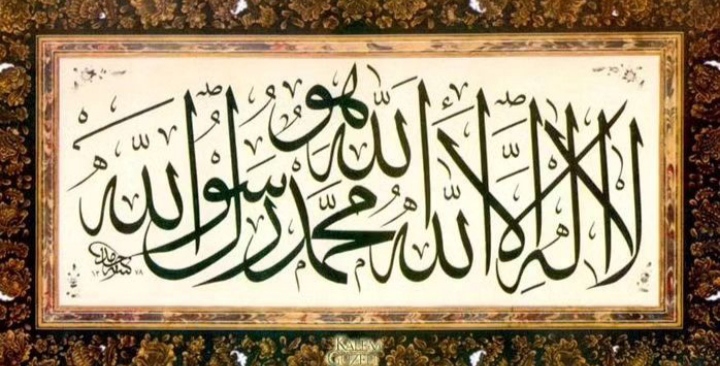 الله هو
لا اله الا الله محمد رسول الله
حامد
KALEM
GÜZELİ